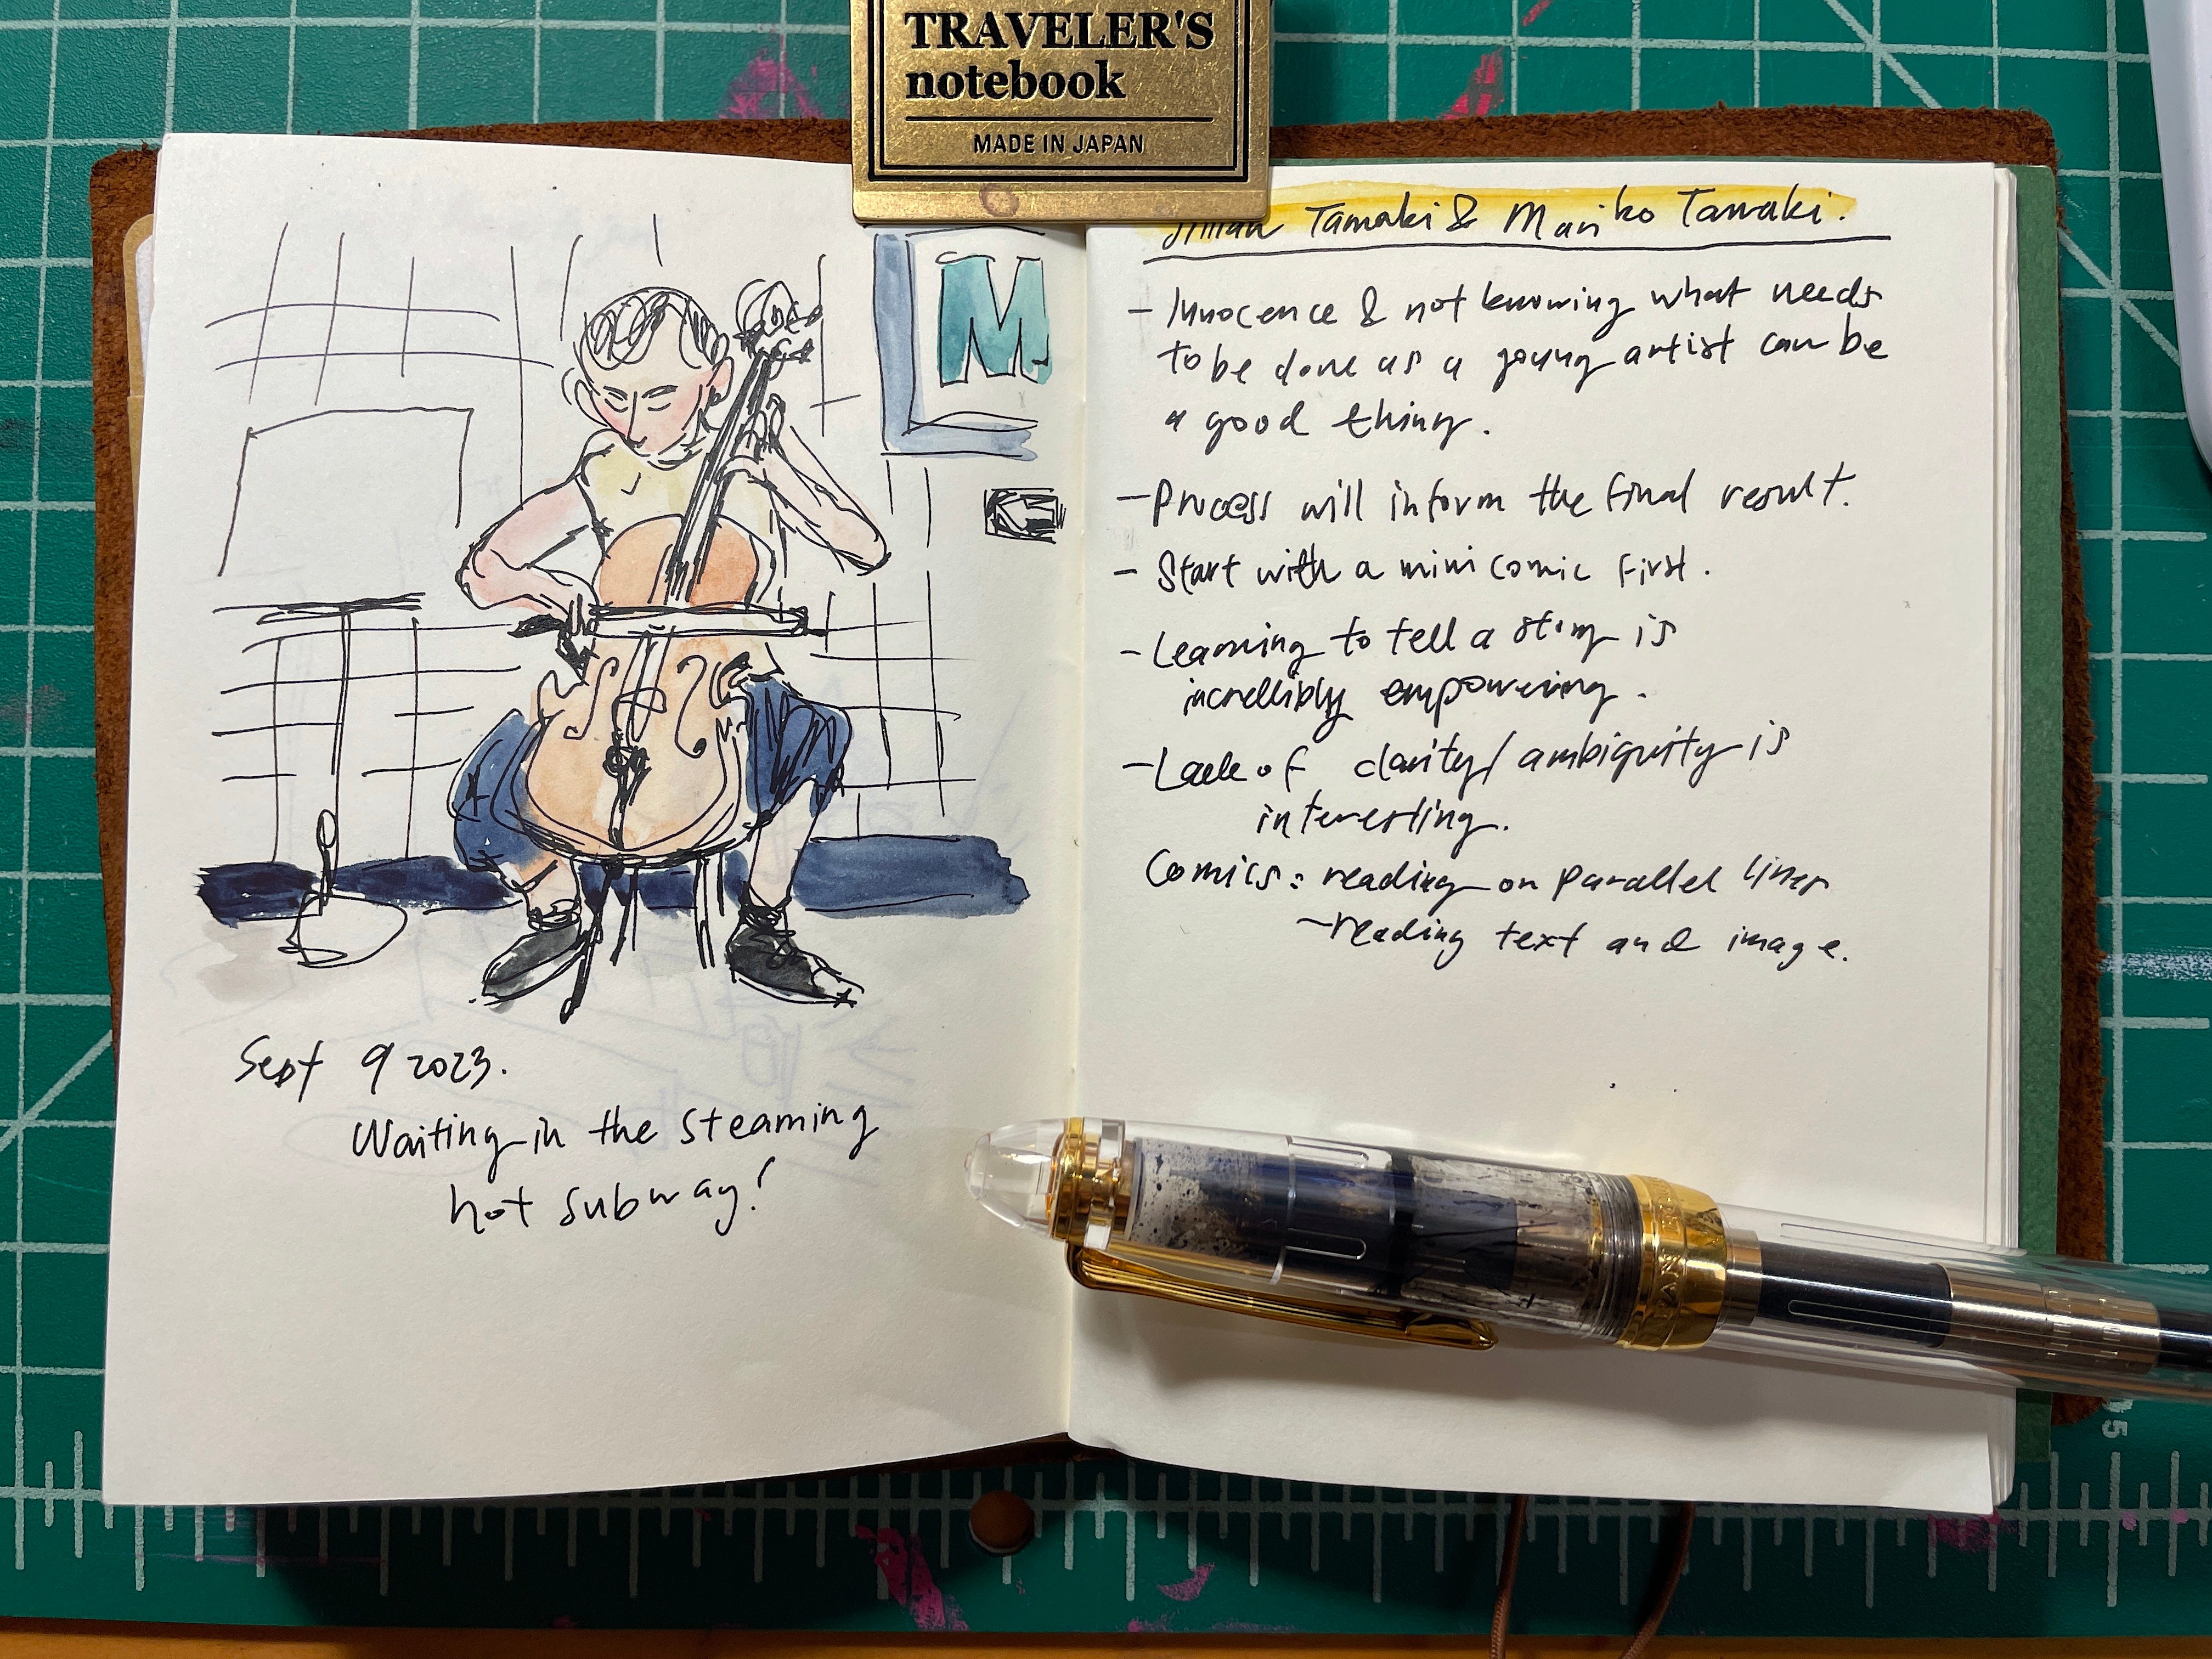 TRAVELER'S
notebook
MADE IN JAPAN
M
Sept 9 2023.
Waiting in the steaming
hot subway!
Jillian Tamaki & Mariko Tamaki.
- Innocence & not knowing what needs
to be done as a young artist can be
a good thing.
- Process will inform the final result.
- Start with a mini comic first.
- Learning to tell a story is
incredibly empowering.
- Lack of clarity/ambiguity is
interesting.
Comics: reading on parallel lines
- reading text and image.
5